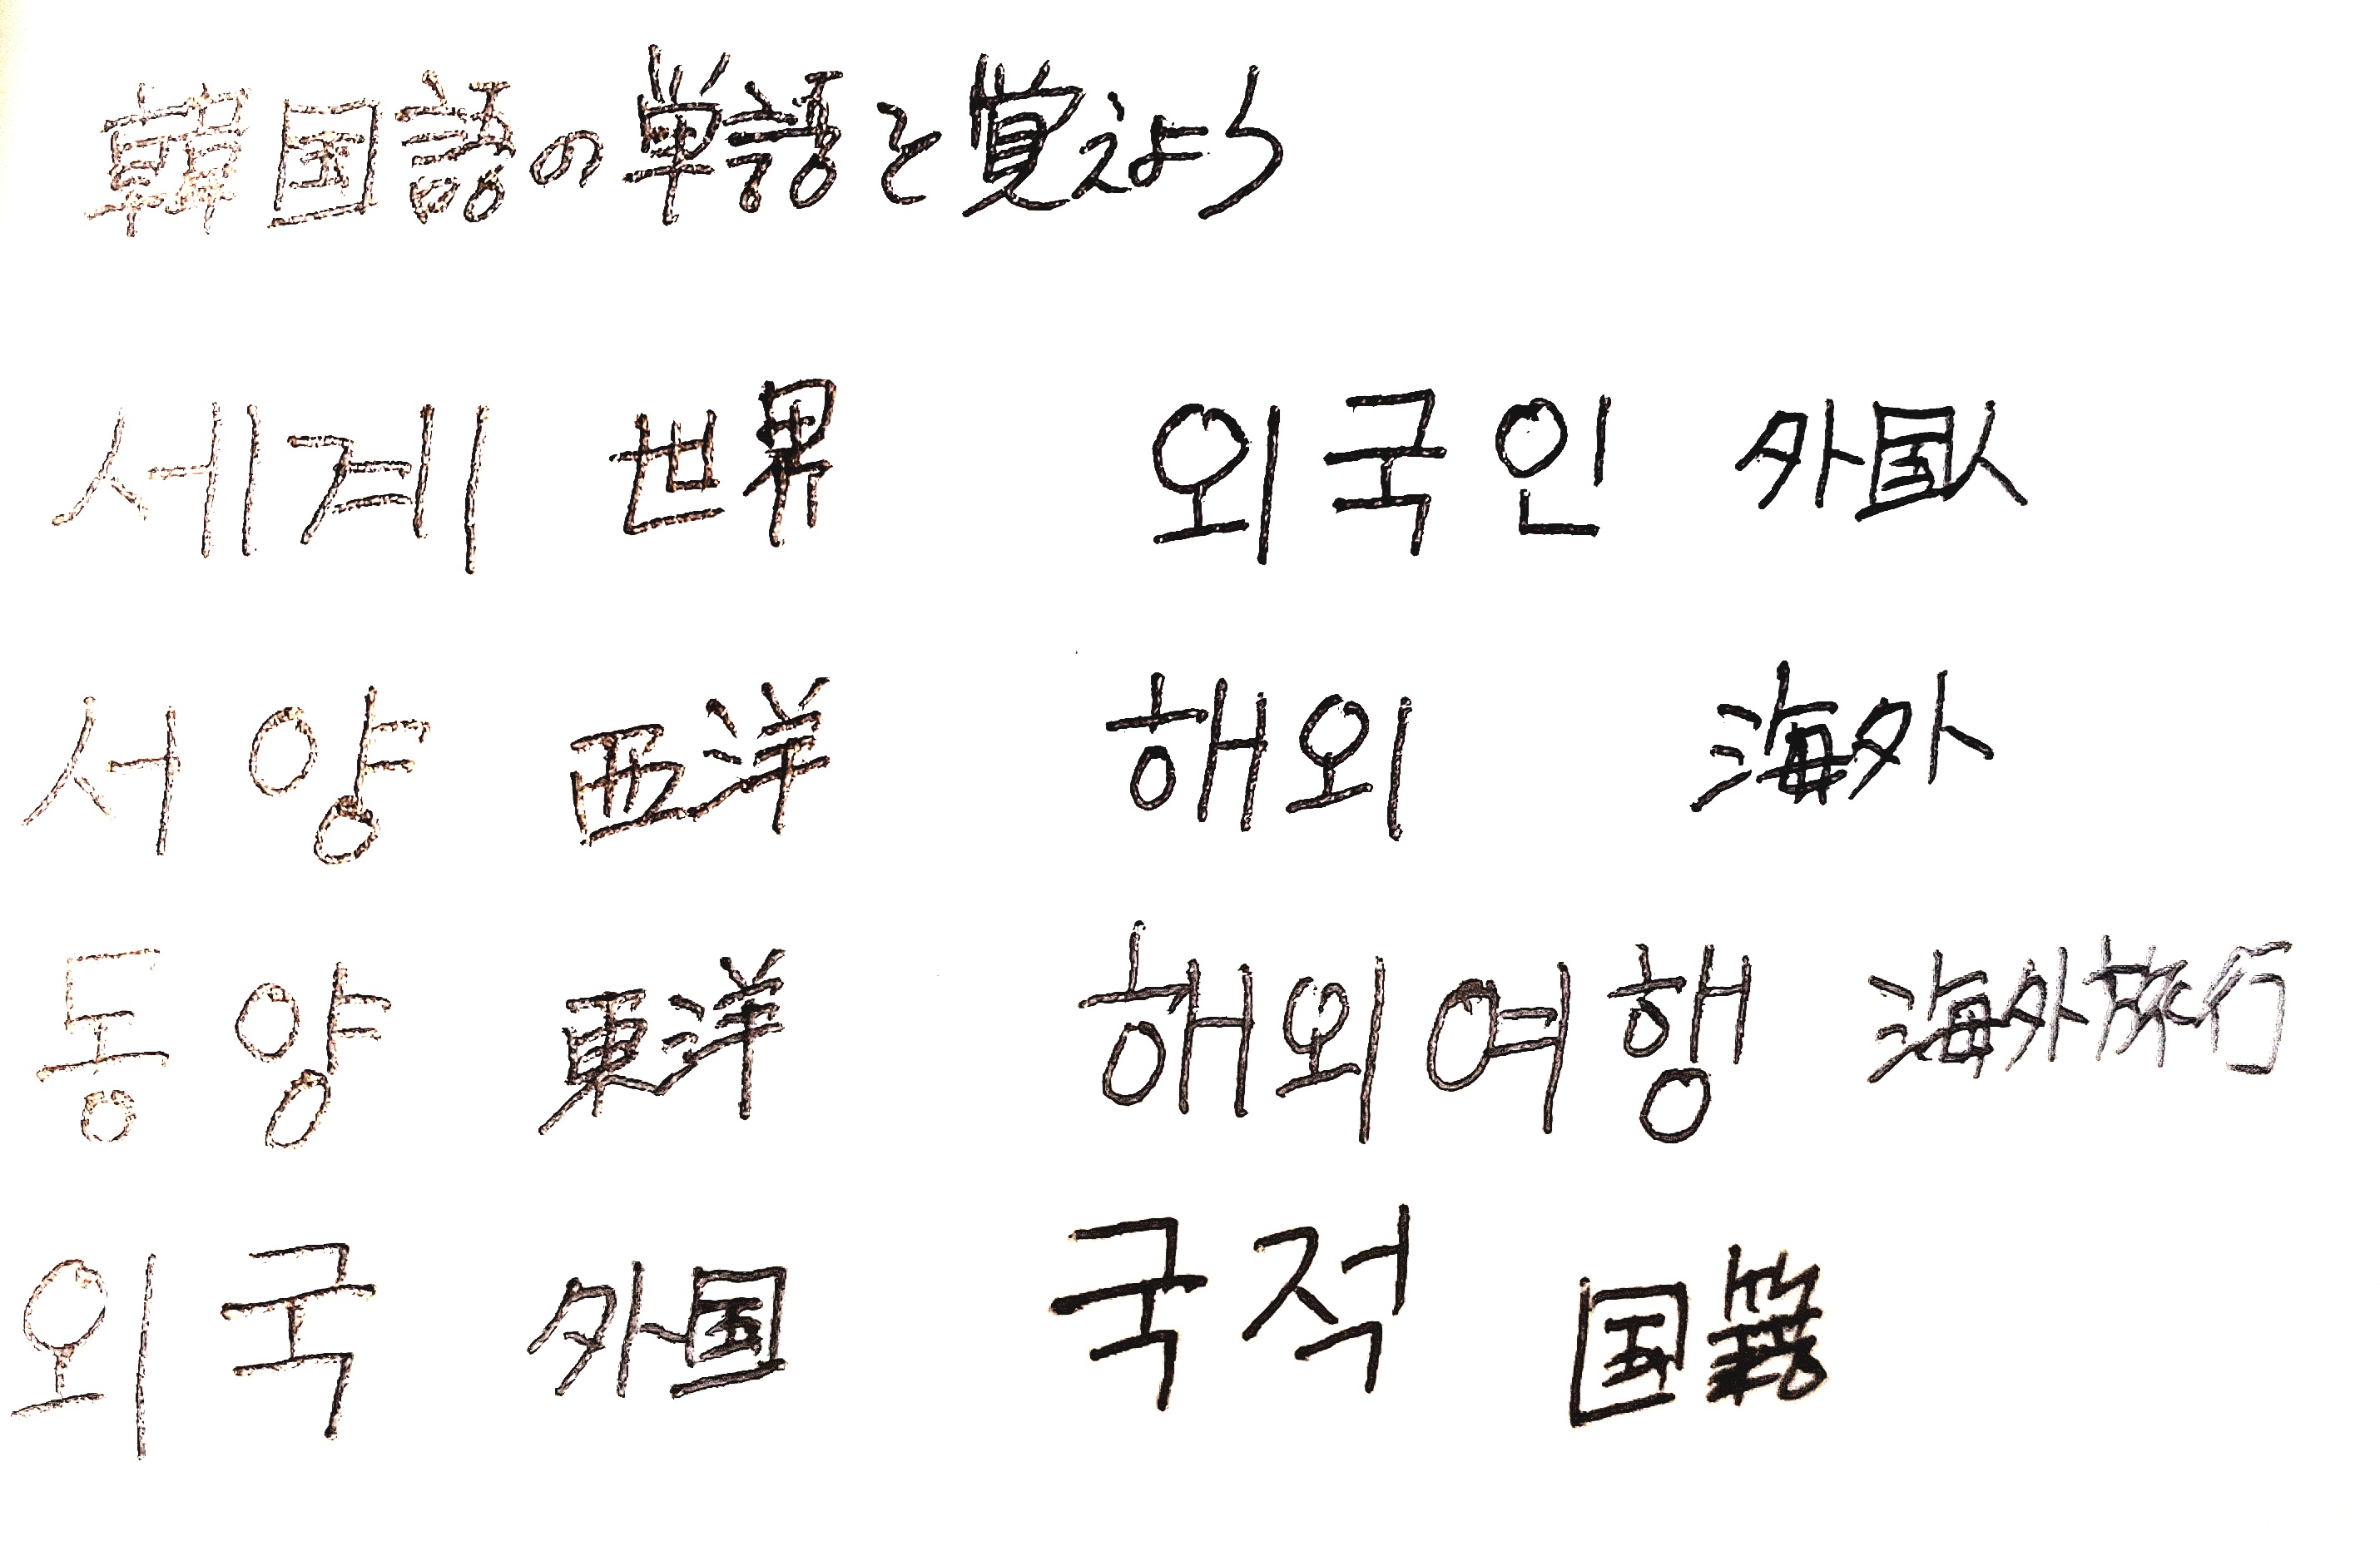 韓国語の単語を覚えよう
세계 世界 외국인 外国人
서양 西洋 해외 海外
동양 東洋 해외여행 海外旅行
외국 外国 국적 国籍